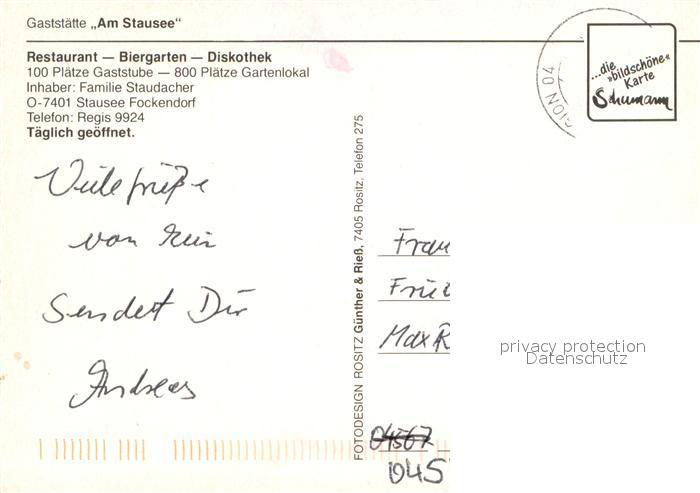 Gaststätte „Am Stausee“
Restaurant — Biergarten — Diskothek
100 Plätze Gaststube — 800 Plätze Gartenlokal
Inhaber: Familie Staudacher
O-7401 Stausee Fockendorf
Telefon: Regis 9924
Täglich geöffnet.
Viele Grüße
von hier
Sendet Dir
Andreas
FOTODESIGN ROSITZ Günther & Rieß, 7405 Rositz, Telefon 275
GION 04
...die
»bildschöne«
Karte
Schumann
Frau
Frie
Max R
04567
045
privacy protection
Datenschutz